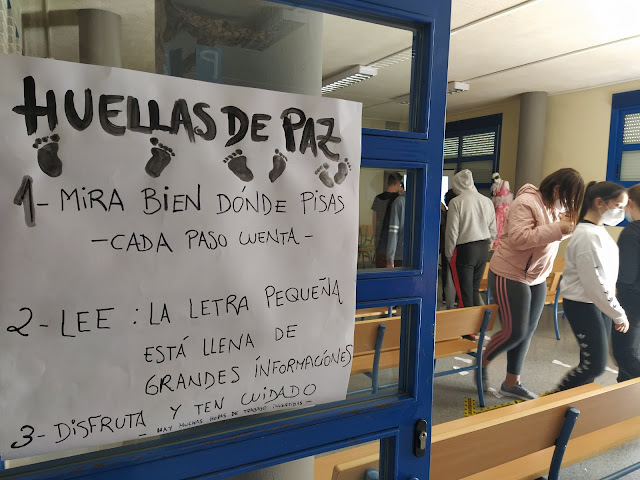 HUELLAS DE PAZ
1- MIRA BIEN DÓNDE PISAS
- CADA PASO CUENTA -
2- LEE : LA LETRA PEQUEÑA
ESTÁ LLENA DE
GRANDES INFORMACIONES
3- DISFRUTA Y TEN CUIDADO
- HAY MUCHAS HORAS DE TRABAJO INVERTIDAS -